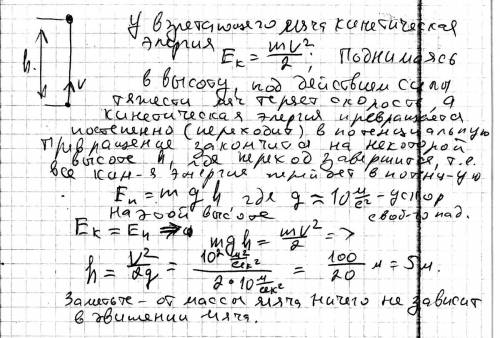 У взлетающего мяча кинетическая
энергия E_k = mv²/2; Поднимаясь
в высоту, под действием силы
тяжести мяч теряет скорость, а
кинетическая энергия превращается
постепенно (переходит) в потенциальную
превращение закончится на некоторой
высоте h, где переход завершится, т.е.
вся кин-я энергия перейдёт в потенц-ую
h
v
Eп = mgh, где g ≈ 10 м/с² - ускор
свобо-го пад.
На этой высоте
Eк = Eп => mgh = mv²/2 =>
h = v²/2g = 10² м²/сек² / 2*10 м/сек² = 100/20 м = 5м.
Заметьте - от массы мяча ничего не зависит
в движении мяча.